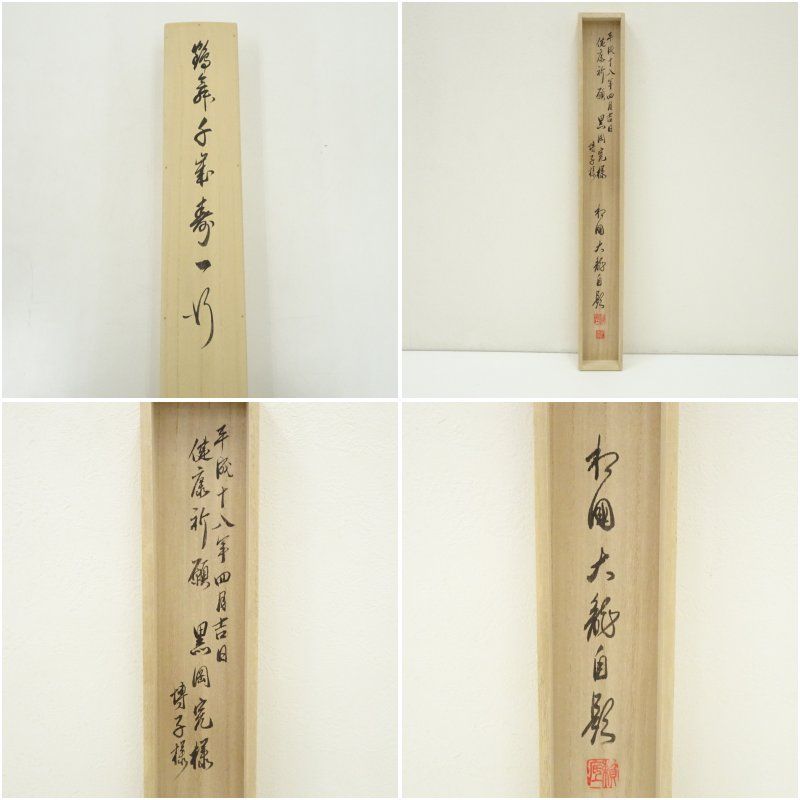 鶴舞千歳寿一行
平成十八年四月吉日
健康祈願 黒岡完様
博子様
相國大龍自題
平成十八年四月吉日
健康祈願 黒岡完様
博子様
相國大龍自題